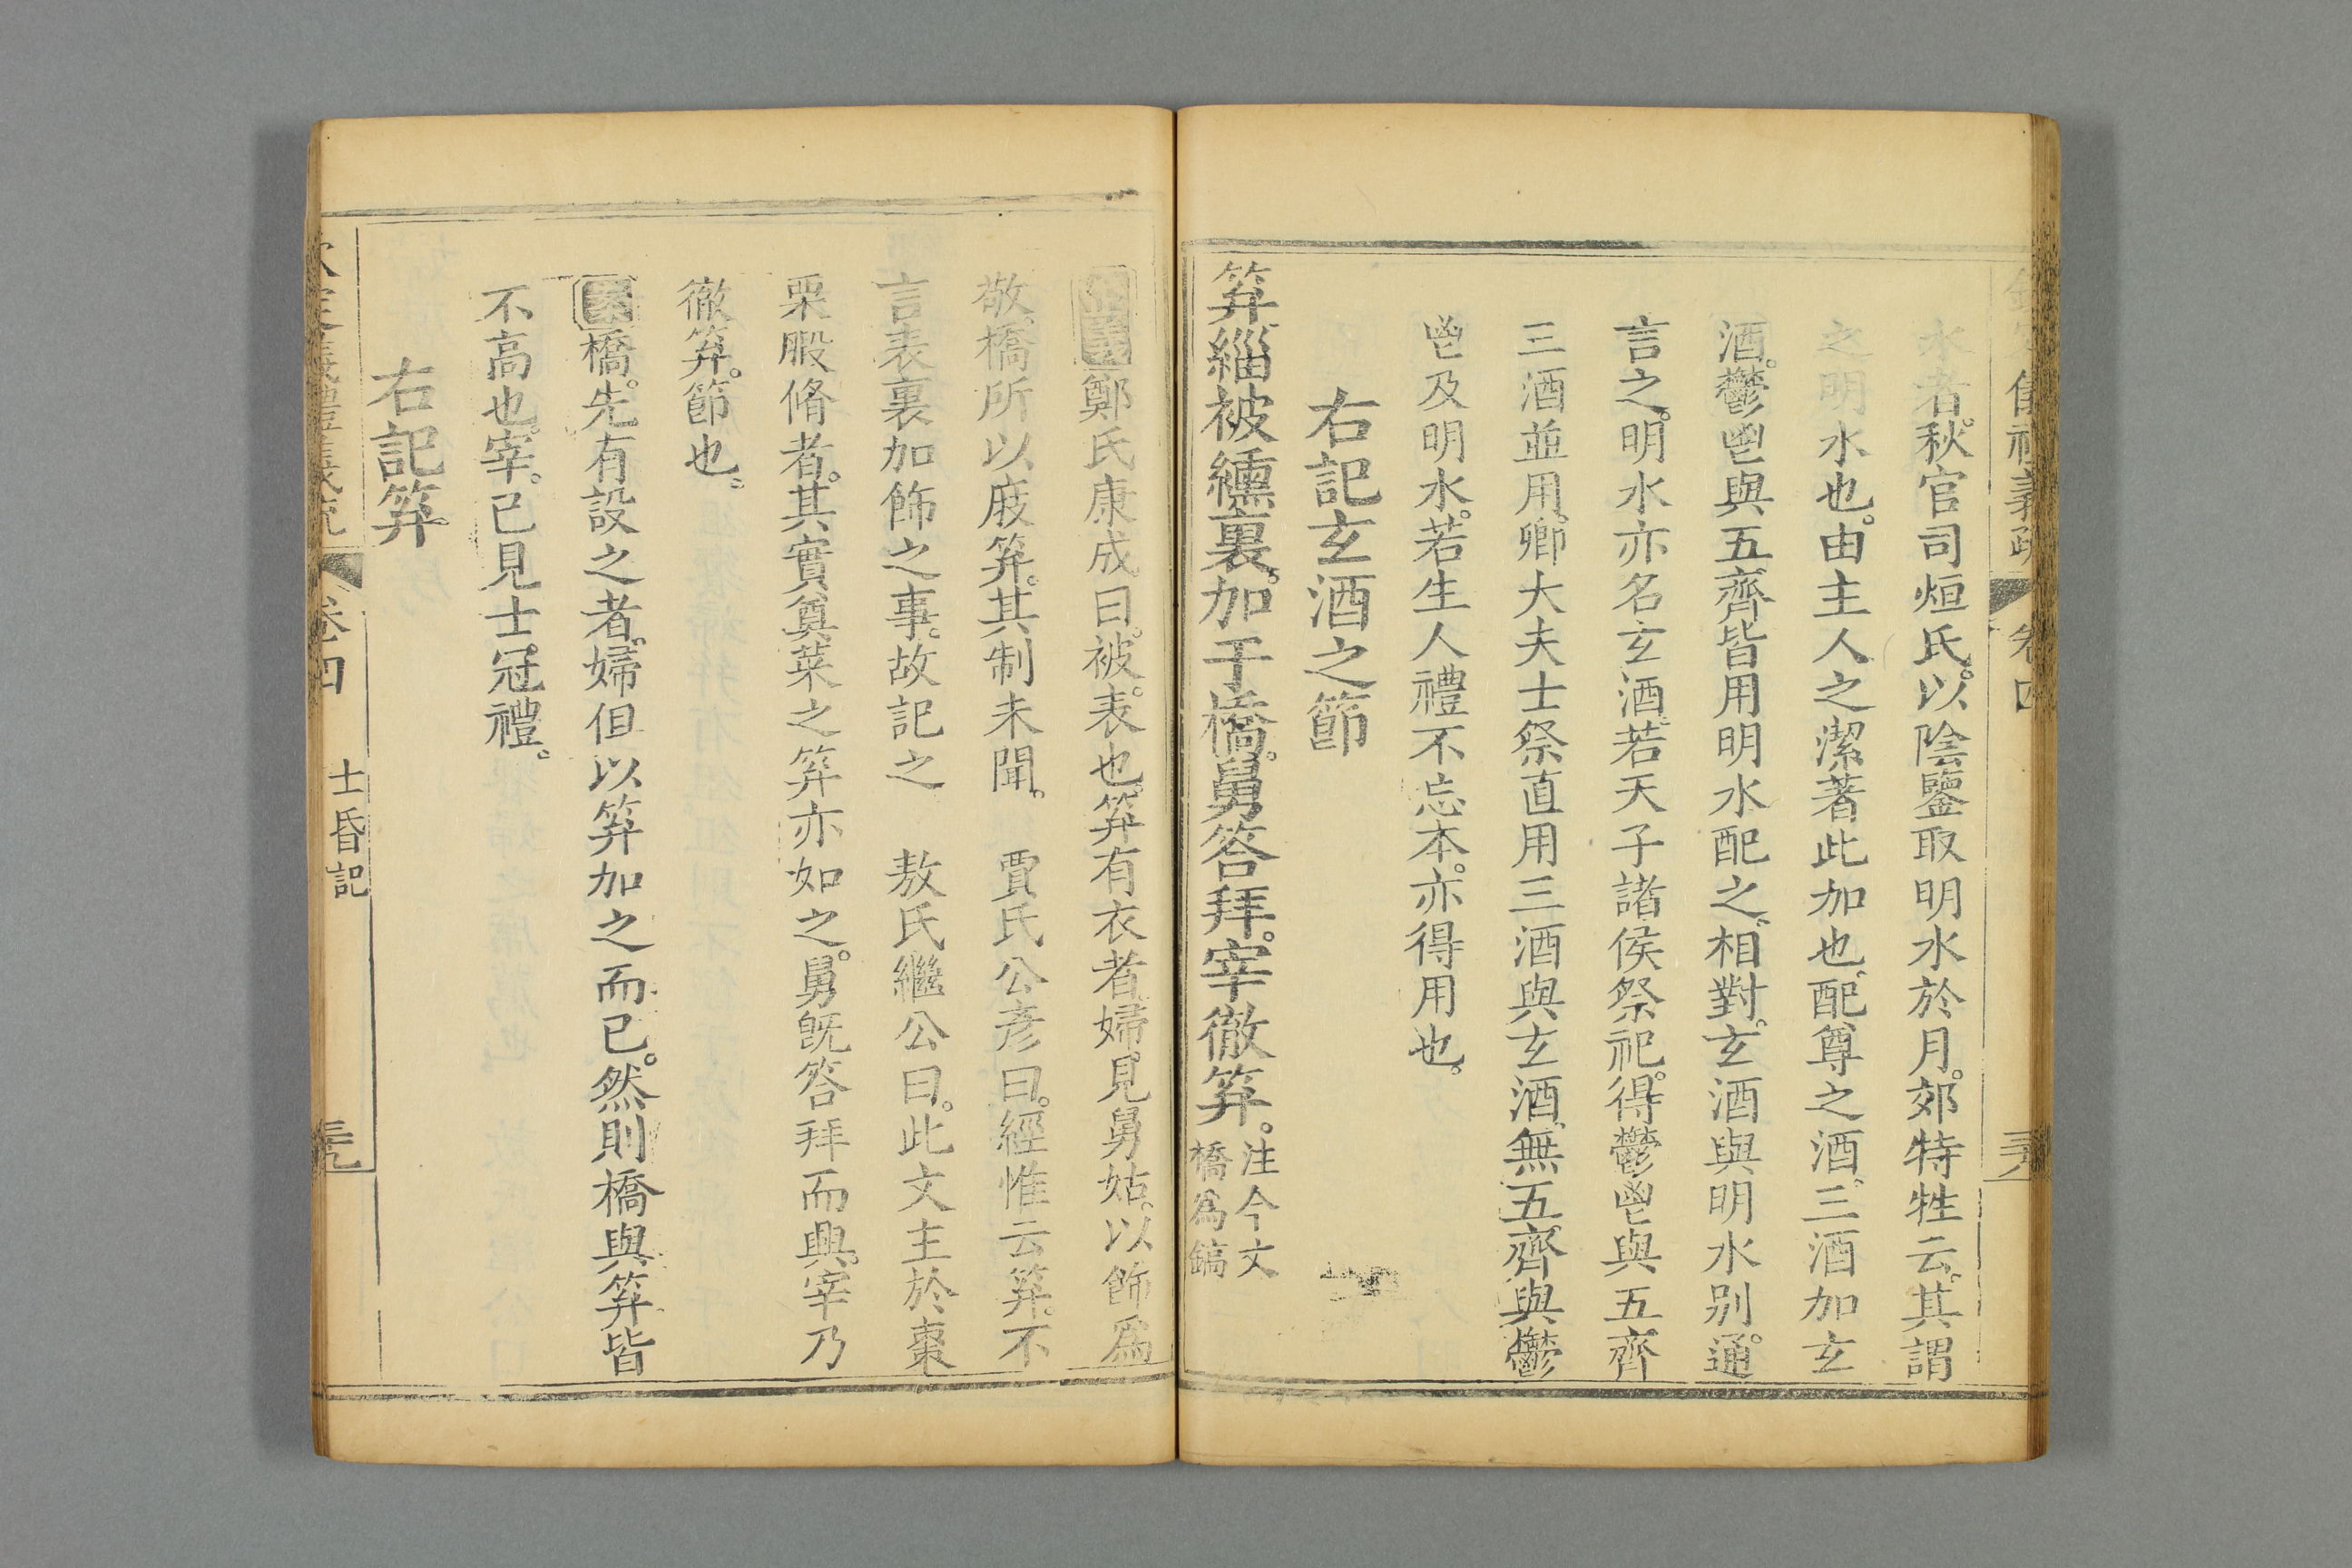 儀禮義疏 卷四
水者。秋官司烜氏。以陰鑒取明水於月。郊特牲云。其謂
之明水也。由主人之潔著此加也。配尊之酒。三酒加玄
酒。鬱鬯與五齊皆用明水配之。相對。玄酒與明水别。通
言之。明水亦名玄酒。若天子諸侯祭祀。得鬱鬯與五齊
三酒並用。卿大夫士祭直用三酒與玄酒。無五齊與鬱
鬯及明水。若生人禮不忘本。亦得用也。
右記玄酒之節
笲緇被纁裏。加于橋。舅答拜。宰徹笲。注今文
橋爲鎬
鄭氏康成曰。被。表也。笲有衣者。婦見舅姑。以飾爲
敬。橋所以庪笲。其制未聞。 賈氏公彥曰。經惟云笲。不
言表裏加飾之事。故記之 敖氏繼公曰。此文主於棗
栗腶脩者。其實奠菜之笲亦如之。舅旣答拜而興。宰乃
徹笲。節也。
案橋。先有設之者。婦但以笲加之而已。然則橋與笲皆
不高也。宰。已見士冠禮。
右記笲
儀禮義疏 卷四 士昏記